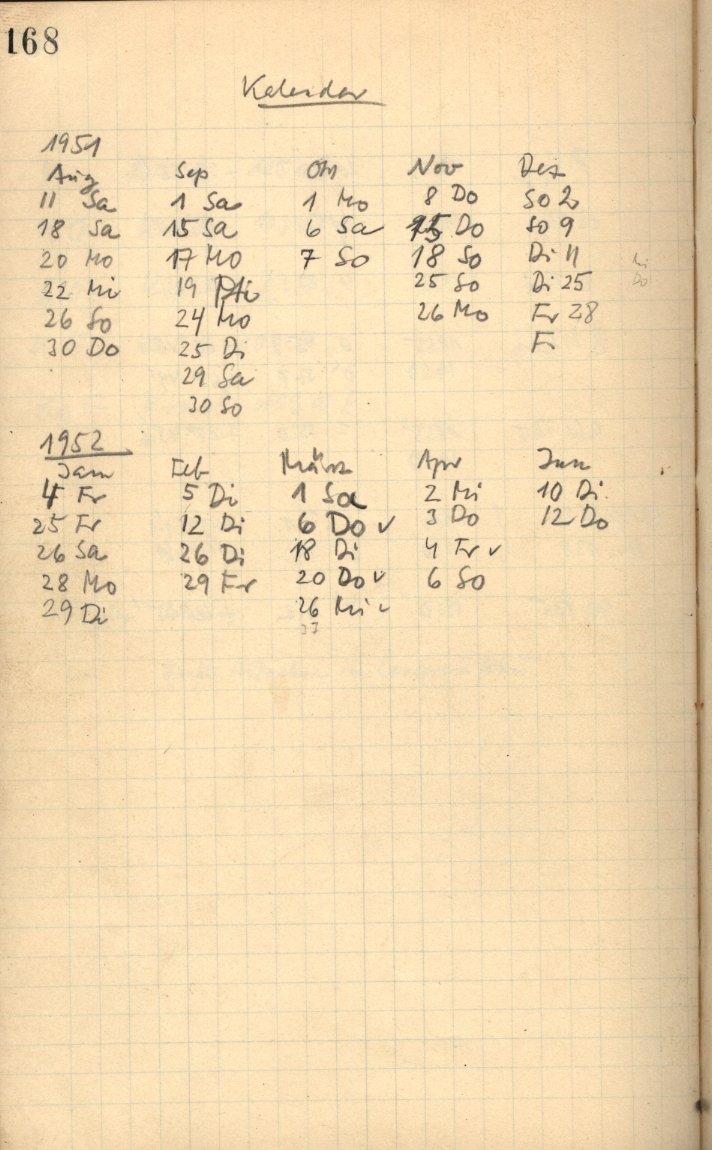 168
Kalender
1951
Aug Sep Okt Nov Dez
11 Sa 1 Sa 1 Mo 8 Do So 2
18 Sa 15 Sa 6 Sa 15 Do So 9
20 Mo 17 Mo 7 So 18 So Di 11
22 Mi 19 Mi 25 So Di 25
26 So 24 Mo 26 Mo Fr 28
30 Do 25 Di Fr
29 Sa
30 So
1952
Jan Feb März Apr Jun
4 Fr 5 Di 1 Sa 2 Mi 10 Di
25 Fr 12 Di 6 Do ✓ 3 Do 12 Do
26 Sa 26 Di 18 Di 4 Fr ✓
28 Mo 29 Fr 20 Do ✓ 6 So
29 Di 26 Mi ✓